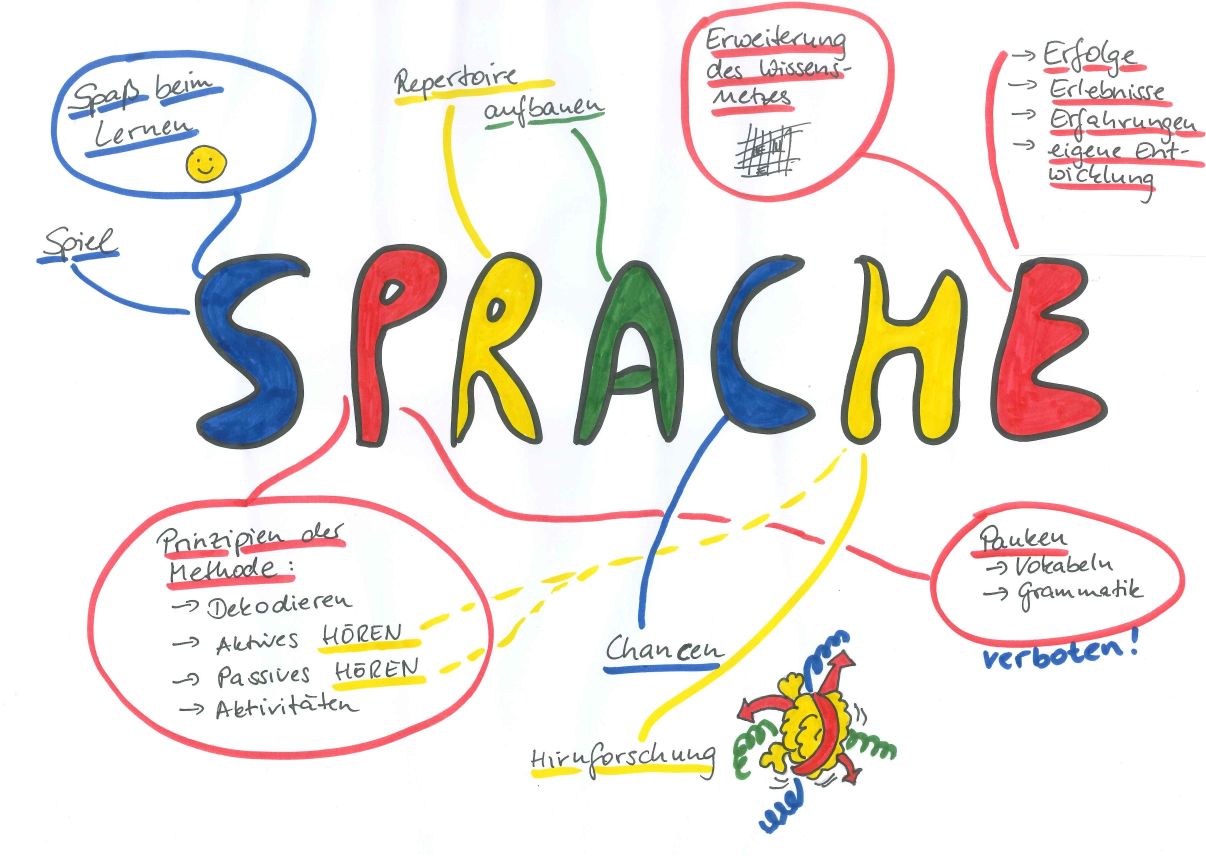 Spaß beim
Lernen
Spiel
Repertoire
aufbauen
Erweiterung
des Wissens-
Netzes
→ Erfolge
→ Erlebnisse
→ Erfahrungen
→ eigene Ent-
wicklung
SPRACHE
Prinzipien der
Methode:
→ Dekodieren
→ Aktives HÖREN
→ Passives HÖREN
→ Aktivitäten
Chancen
Hirnforschung
Pauken
→ Vokabeln
→ Grammatik
verboten!